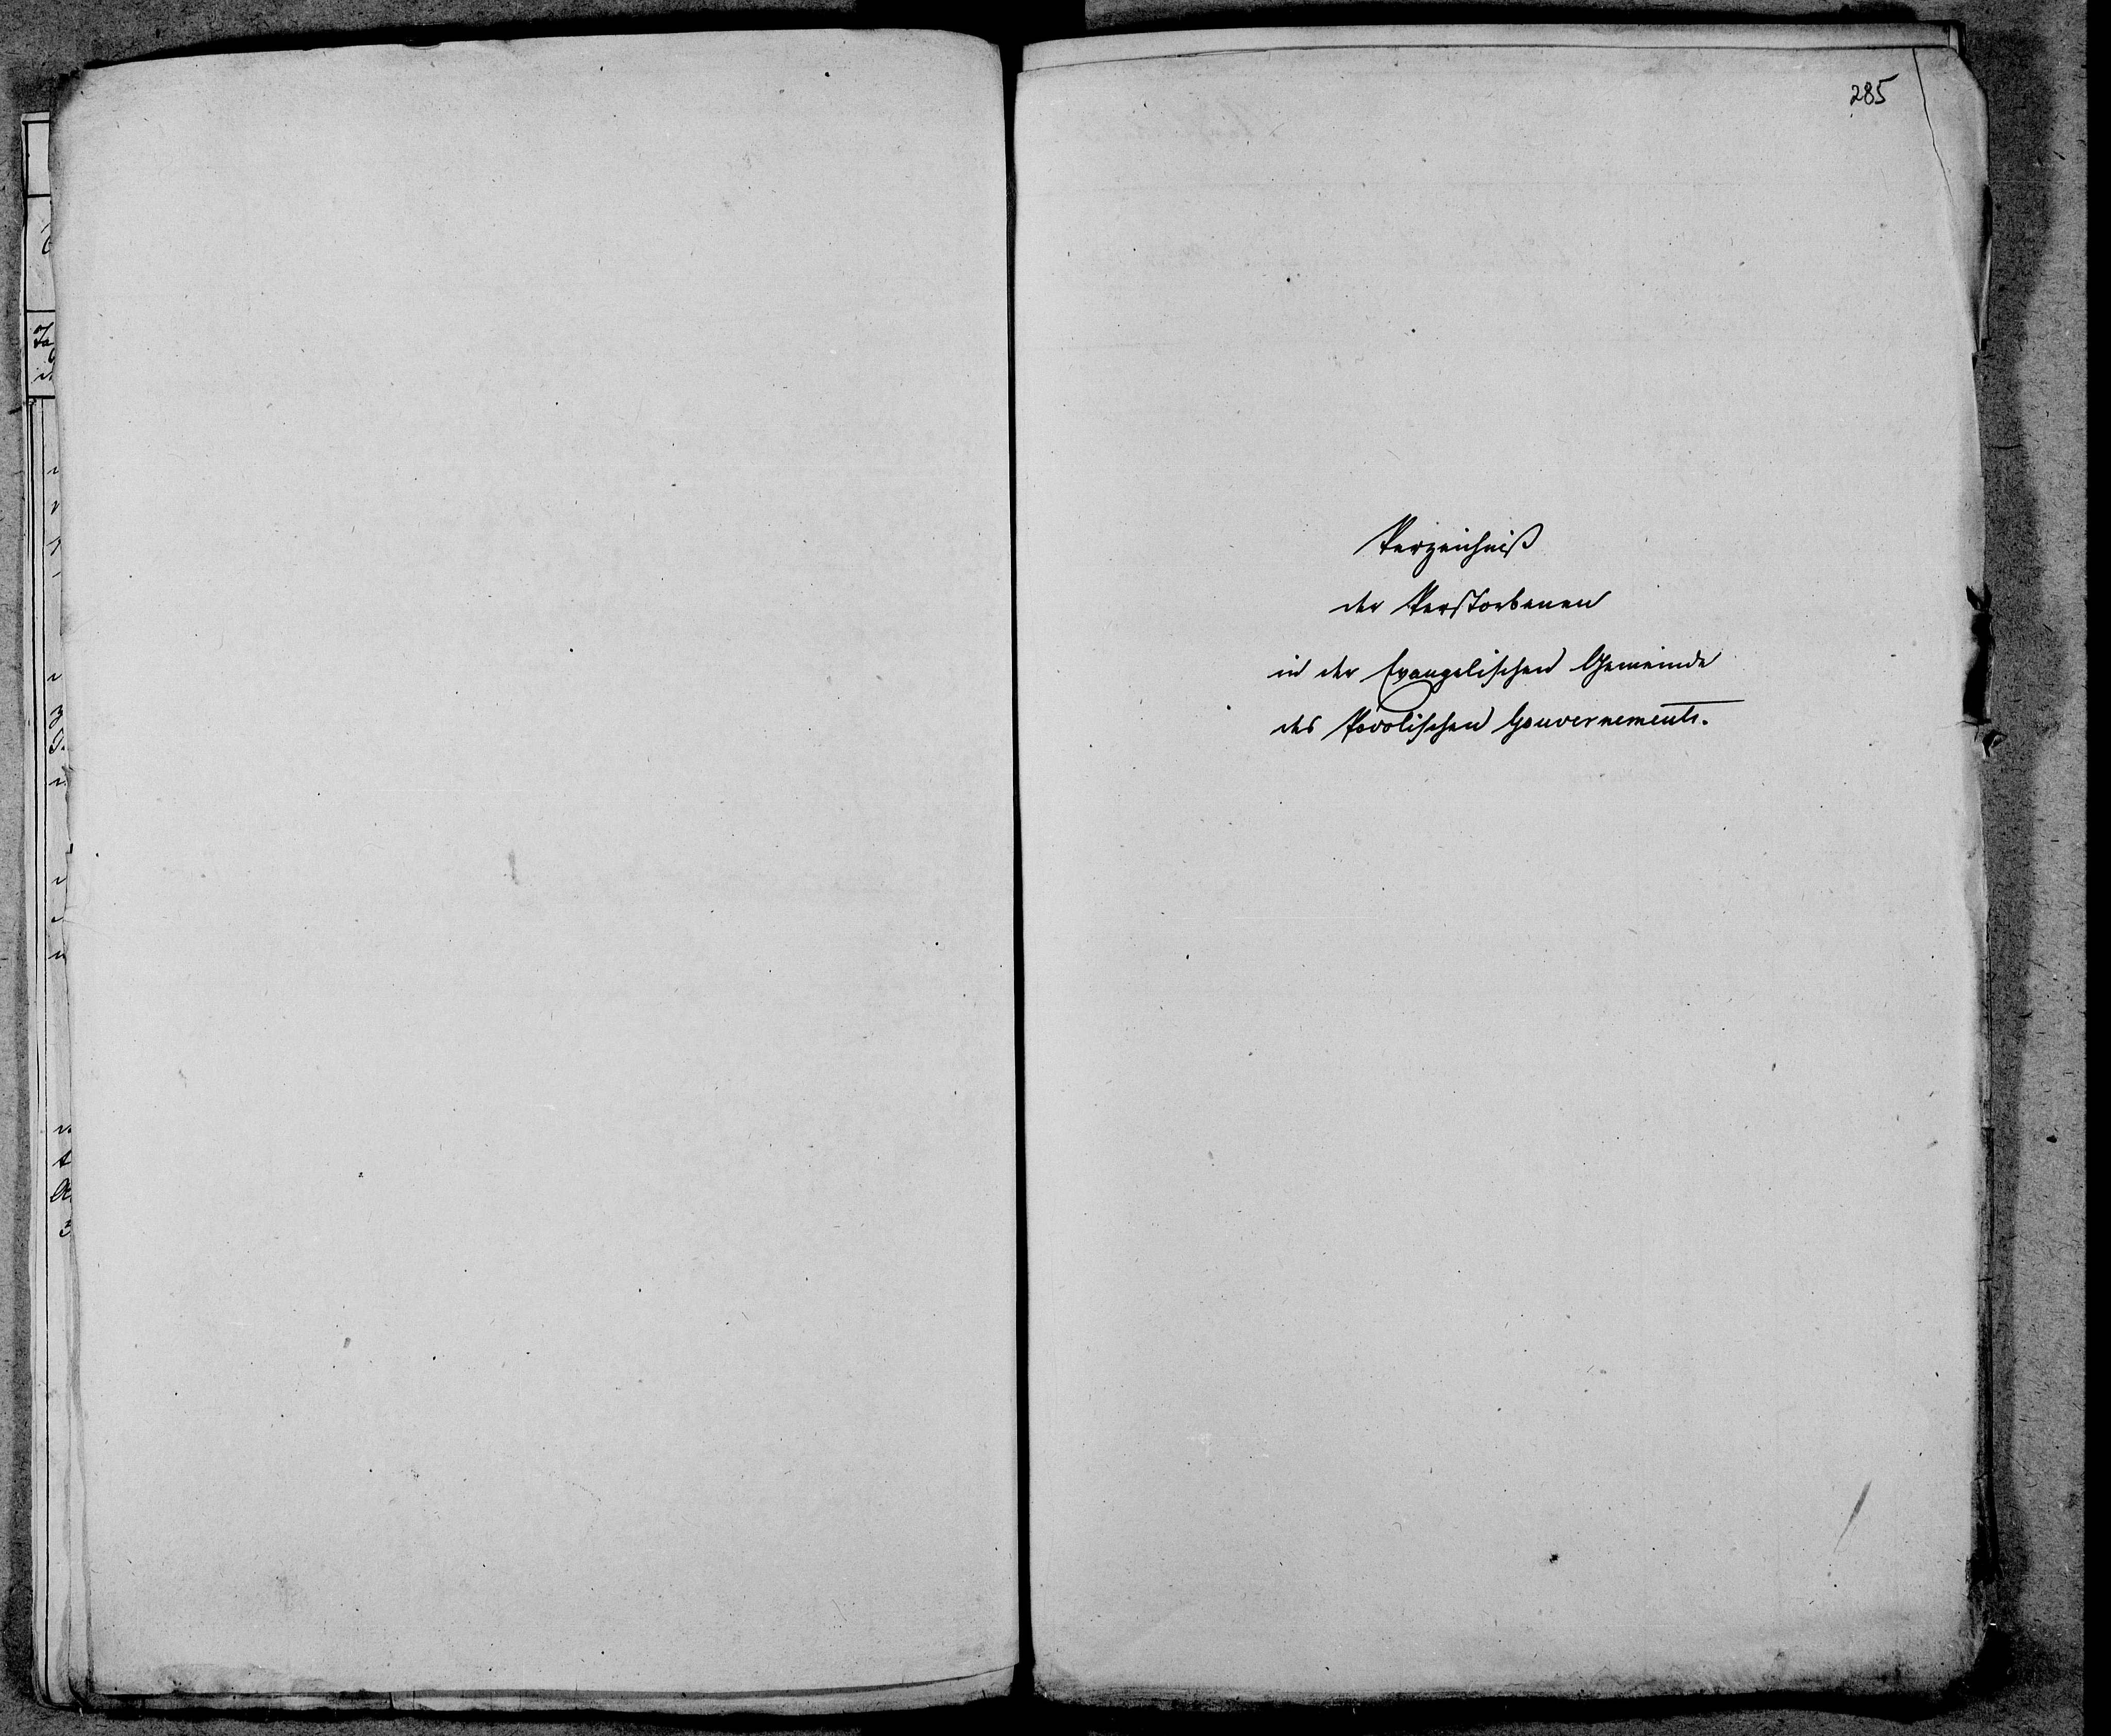 285
Verzeichniß
der Verstorbenen
in der Evangelischen Gemeinde
des Podolischen Gouvernements.